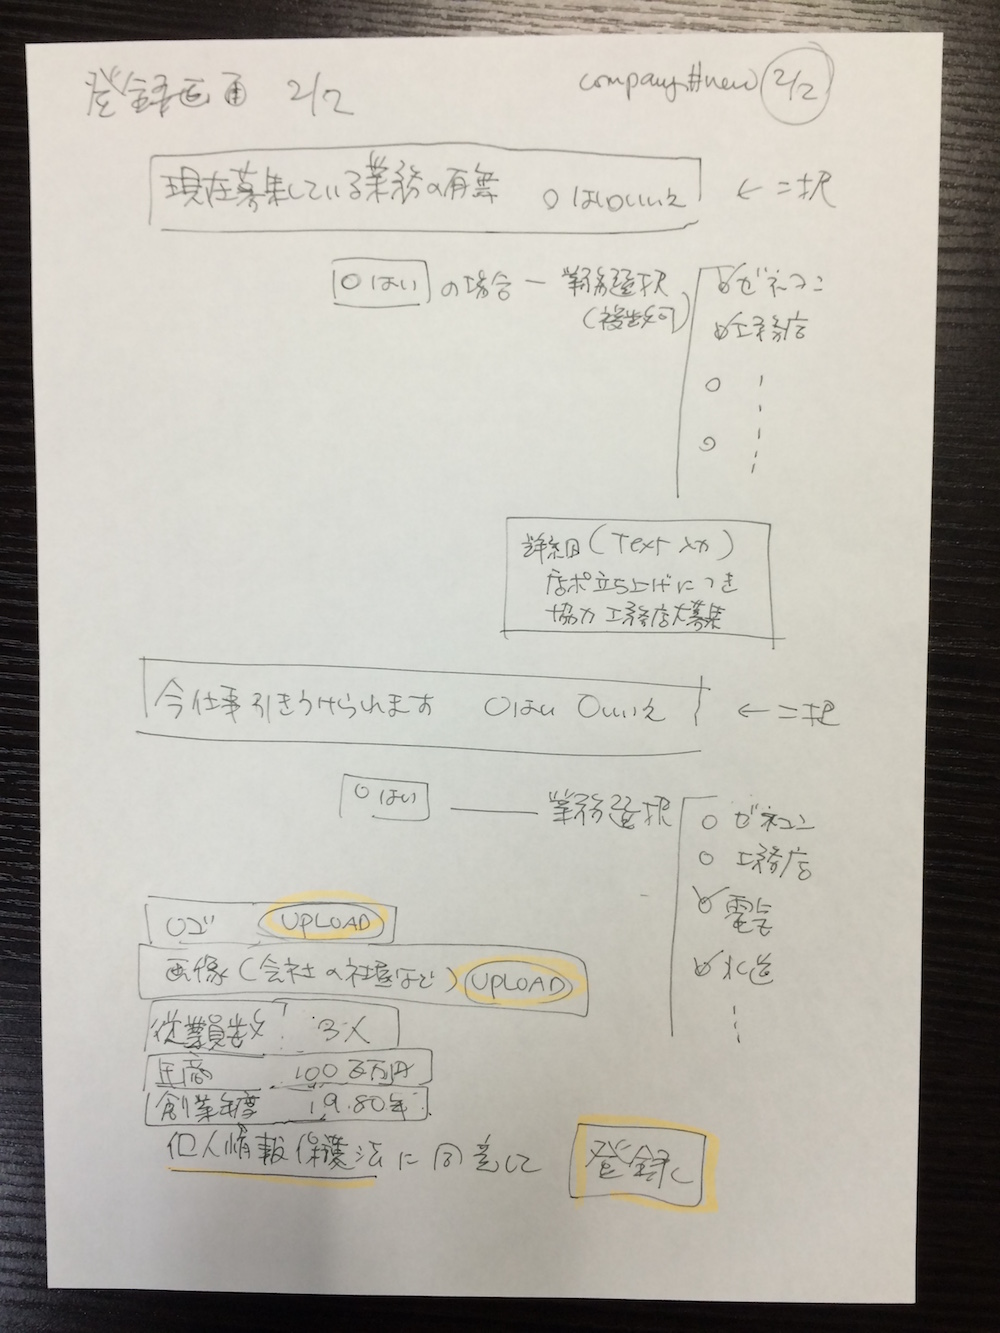 登録画面 2/2
company#new 2/2
現在募集している業務の有無 ○はい○いいえ ← 二択
○はい の場合 ー 業務選択
(複数可)
ゼネコン
工務店
詳細(Text入力)
店ポ立ち上げにつき
協力工務店大募集
今仕事引きうけられます ○はい ○いいえ ← 二択
○はい ― 業務選択
○ ゼネコン
○ 工務店
電気
水道
ロゴ UPLOAD
画像(会社の社屋など) UPLOAD
従業員数 3人
年商 100百万円
創業年度 1980年
個人情報保護法に同意して 登録